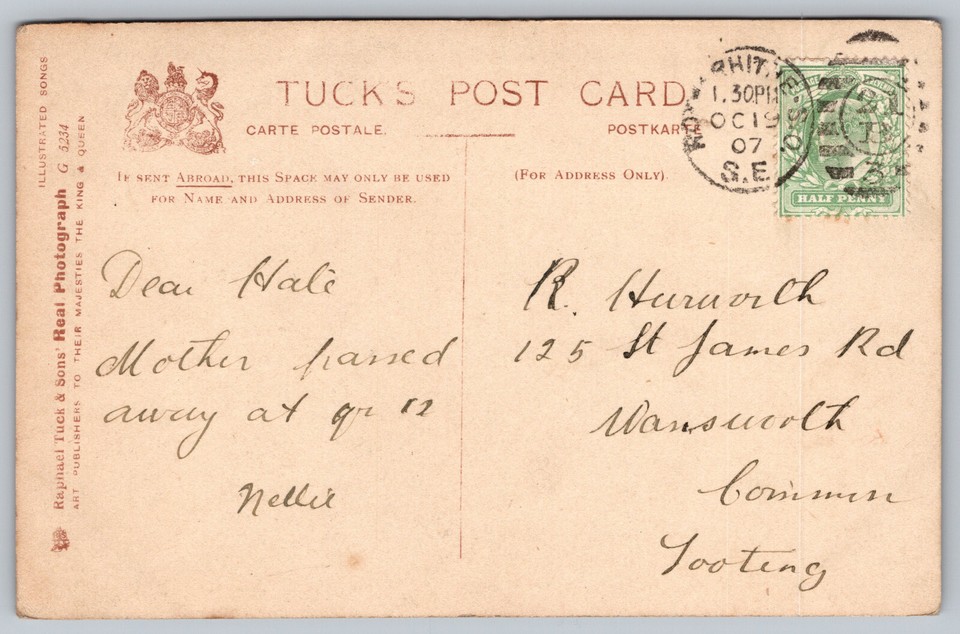 ILLUSTRATED SONGS
Raphael Tuck & Sons' Real Photograph G 5234
ART PUBLISHERS TO THEIR MAJESTIES THE KING & QUEEN
TUCK'S POST CARD
CARTE POSTALE.
POSTKARTE
IF SENT ABROAD, THIS SPACE MAY ONLY BE USED
FOR NAME AND ADDRESS OF SENDER.
(FOR ADDRESS ONLY).
1.30PM
OC 19
07
S.E
HALF PENNY
Dear Hale
Mother passed
away at qr 12
Nellie
R. Hurworth
125 St James Rd
Wansworth
Common
Tooting